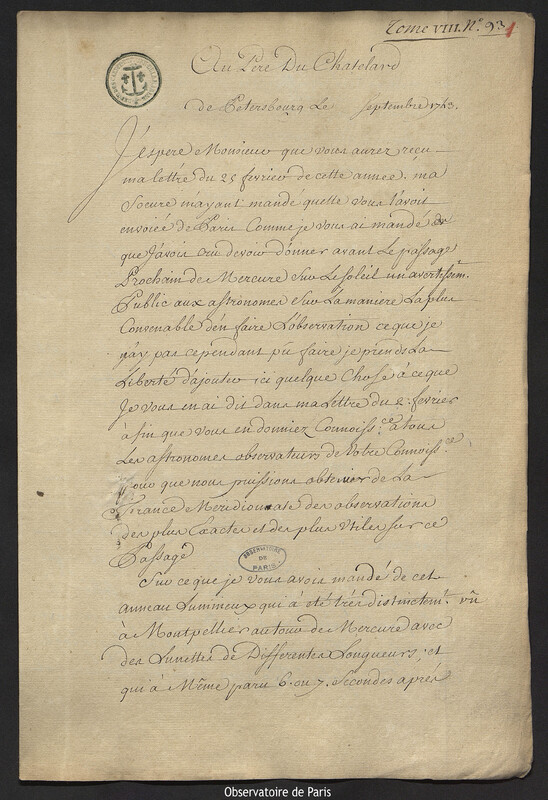 Tome VIII. N.º 93
1
Au Pere Du Chatelard
de Petersbourg Le Septembre 1743.
J'espere Monsieur que vous aurez reçu
ma lettre du 25 fevrier de cette année. ma
Soeure m'ayant mandé quelle vous l'avoit
envoiée de Paris Comme je vous ai mandé
que J'avois cru devoir donner avant Le passage
Prochain de Mercure sur Le soleil un avertissem.t
Public aux astronomes sur La maniere La plus
Convenable d'en faire L'observation ce que je
n'ay pas cependant pu faire je prends La
Liberté d'ajouter ici quelque Chose à ce que
Je vous en ai dit dans ma Lettre du 2. fevrier
à fin que vous en donniez Connoiss.ce a tous
Les astronomes observateurs de Votre Connoiss.ce
pour que nous puissions obtenir de La
France Meridionale des observations
des plus Exactes et des plus Utiles sur ce
Passage
OBSERVATOIRE
DE
PARIS
Sur ce que je vous avois mandé de cet
anneau Lumineux qui à été trés distinctem.t vû
à Montpellier autour de Mercure avec
des Lunettes de Differentes Longueurs, et
qui à Même paru 6. ou 7. Secondes aprés
Observatoire de Paris